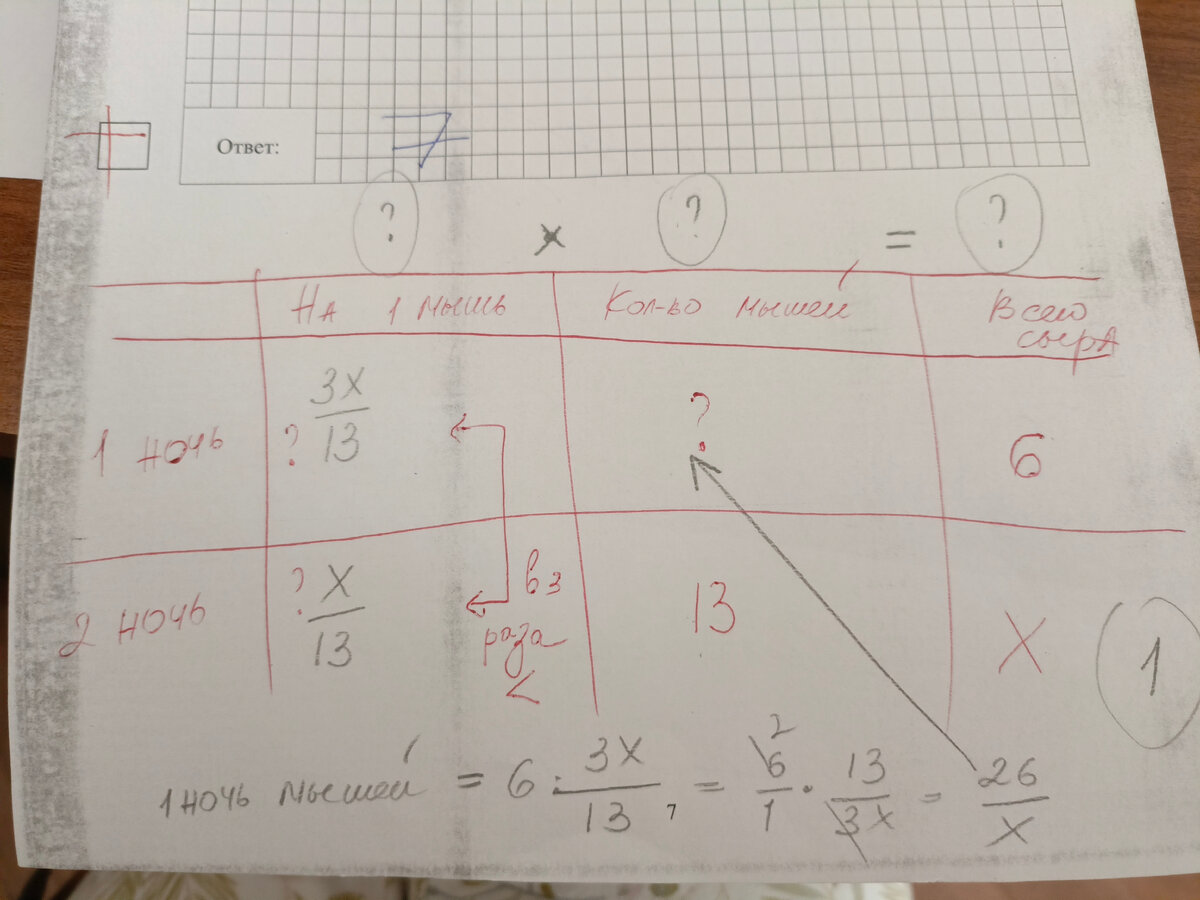 Ответ: 7
? × ? = ?
На 1 мышь Кол-во мышей Всего сыра
1 ночь ? 3x/13 ? 6
2 ночь ? x/13 в 3 раза < 13 X 1
1 ночь мышей = 6 : 3x/13 = 6/1 · 13/3x = 26/x
2
7